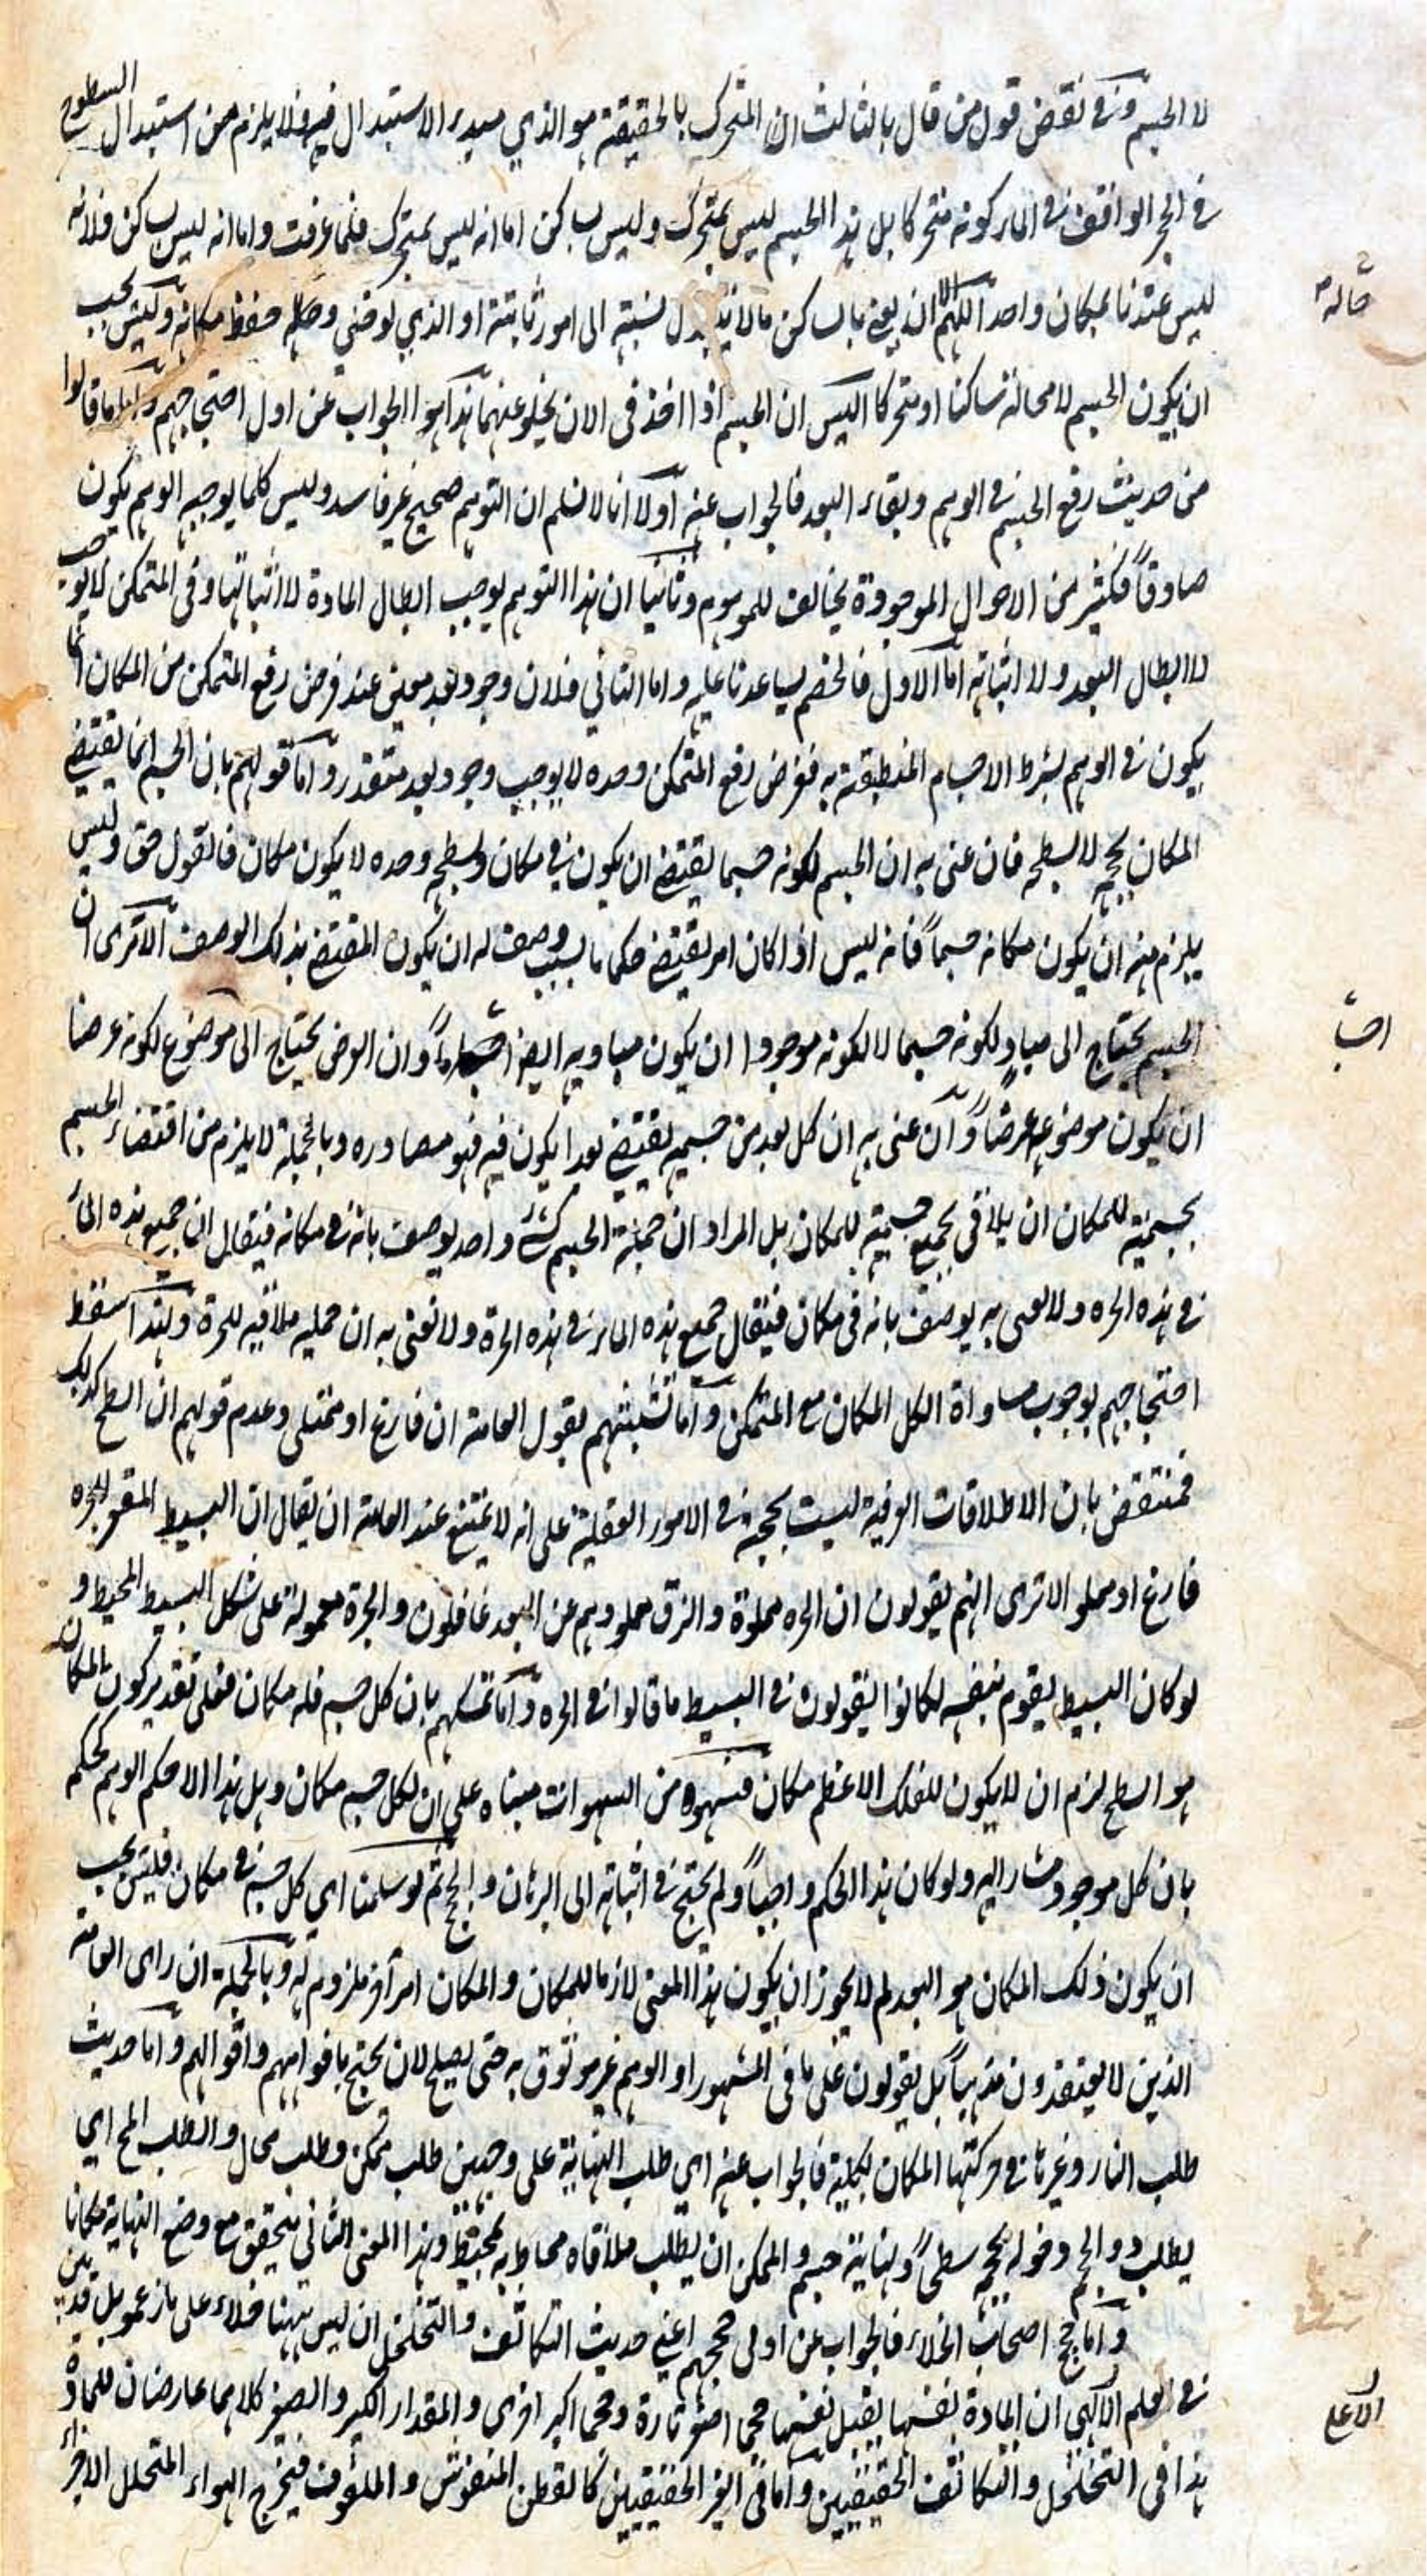 لا الجسم وفي نقض قول من قال بالثالث ان المتحرك بالحقيقة هو الذي مبدء الاستبدال فيه فلا يلزم من استبدال السطوح
في الحجر الواقف في الماء كونه متحركا بل هذا الجسم ليس بمتحرك وليس بساكن اما انه ليس بمتحرك فلما عرفت واما انه ليس بساكن فلانه
ليس عندنا بمكان واحد اللهم الا ان يعنى بالساكن ما لا يتبدل نسبته الى امور ثابتة او الذي لو خلي وحاله حفظ مكانه وليس يجب
حاله
ان يكون الجسم لا محالة ساكنا او متحركا اليس ان الجسم اذا اخذ في الان يخلو عنهما هذا هو الجواب عن اول احتجاجهم واما ما قالوا
من حديث رفع الجسم في الوهم وبقاء البعد فالجواب عنه اولا انا لا نسلم ان التوهم صحيح غير فاسد وليس كلما يوجبه الوهم يكون
صادقاً فكثير من الاحوال الموجودة يخالف للموهوم وثانيا ان هذا التوهم يوجب ابطال المادة لا اثباتها وفي المتمكن لا يوجب
لا ابطال البعد ولا اثباته اما الاول فالخصم يساعدنا عليه واما الثاني فلان وجود بعد معين عند فرض رفع المتمكن من المكان انما
يكون في الوهم بشرط الاجسام المنطبقة به ففرض رفع المتمكن وحده لا يوجب وجود بعد متقدر واما قولهم بان الجسم انما يقتضي
المكان بحجمه لا بسطحه فان عنى به ان الجسم لكونه جسما يقتضي ان يكون في مكان وبسطحه وحده لا يكون مكان فالقول حق وليس
يلزم منه ان يكون مكانه جسماً فانه ليس اذا كان امر يقتضي حكما ما بسبب وصف له ان يكون المقتضى بذلك الوصف الا ترى ان
الجسم يحتاج الى مباد لكونه جسما لا لكونه موجودا ان يكون مباديه ايضا اجساماً وان العرض يحتاج الى موضوع لكونه عرضا
ان يكون موضوعه عرضاً وان عنى به ان كل بعد من جسمه يقتضي بعدا يكون فيه فهو مصادره وبالجملة لا يلزم من اقتضاء الجسم
بجسميته للمكان ان يلاقي بجميع جسميته للمكان بل المراد ان جملة الجسم كشيء واحد يوصف بانه في مكانه فيقال ان جميع هذه الماء
في هذه الجره ولا نعنى به يوصف بانه في مكان فيقال جميع هذه الماء في هذه الجرة ولا نعنى به ان جملته ملاقيه للجرة وبهذا سقط
احتجاجهم بوجوب مساواة الكل المكان مع المتمكن واما تشبثهم بقول العامة ان فارغ او ممتلى وعدم قولهم ان السطح كذلك
فمنتقض بان الاطلاقات العرفية ليست بحجة في الامور العقلية على انه لا يمتنع عند العامة ان يقال ان البسيط المقعر للجره
فارغ او مملو الا ترى انهم يقولون ان الجره مملوة والزق مملو وهم عن البعد غافلون والجرة معمولة على شكل البسيط المحيط و
لو كان البسيط يقوم بنفسه لكانوا يقولون في البسيط ما قالوا في الجره واما تمسكهم بان كل جسم فله مكان فعلى تقدير كون المكان
هو السطح لزم ان لا يكون للفلك الاعظم مكان فسهوه من السهوات مبناه على ان لكل جسم مكان وهل هذا الا حكم الوهم كحكم
بان كل موجود مشار اليه ولو كان هذا الحكم واجباً ولم يحتج في اثباته الى البرهان والحجج ثم لو سلمنا اي كل جسم في مكان فليس يجب
ان يكون ذلك المكان هو البعد لم لا يجوز ان يكون هذا المعنى لازما للمكان والمكان امر آخر ملزوم له وبالجملة ان راى العامة
الذين لا يعتقدون مذهباً بل يقولون على ما في المشهور او الوهم غير موثوق به حتى يصلح لان يحتج بافواههم واقوالهم واما حديث
طلب النار وغيرها في حركتها المكان بكليته فالجواب عنه اي طلب النهاية على وجهين طلب ممكن وطلب محال والطلب المح اي
يطلب ذو الحجم دخوله بحجمه سطحاً ونهاية جسم والممكن ان يطلب ملاقاه محاط به بمحيط وهذا المعنى الثاني يتحقق مع وضع النهاية مكانا
واما حجج اصحاب الخلاء فالجواب عن اولى حججهم اعني حديث التكاثف والتخلخل ان ليس هيهنا خلاء على ما زعمو بل قد تبين
في العلم الالهي ان المادة بنفسها يقبل نفسها حجما اصغر تارة وحجما اكبر اخرى والمقدار الكبير والصغير كلاهما عارضان للمادة
الاعلى
هذا في التخلخل والتكاثف الحقيقيين واما في الغير الحقيقيين كالقطن المنفوش والملفوف فيخرج الهواء المتخلل الاجزاء